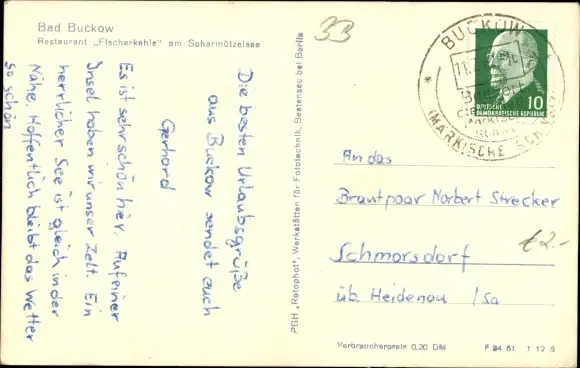 Bad Buckow
Restaurant „Fischerkehle" am Scharmützelsee
33
Die besten Urlaubsgrüße
aus Buckow sendet euch
Gerhard
Es ist sehr schön hier. Auf einer
Insel haben wir unser Zelt. Ein
herrlicher See ist gleich in der
Nähe. Hoffentlich bleibt das Wetter
so schön
PGH „Rotophot", Werkstätten für Fototechnik, Bestensee bei Berlin
BUCKOW
(MÄRKISCHE SCHWEIZ)
DEUTSCHE
DEMOKRATISCHE REPUBLIK
10
An das
Brautpaar Norbert Strecker
€2.-
Schmorsdorf
üb. Heidenau / Sa
Verbraucherpreis 0,20 DM
1 12 5